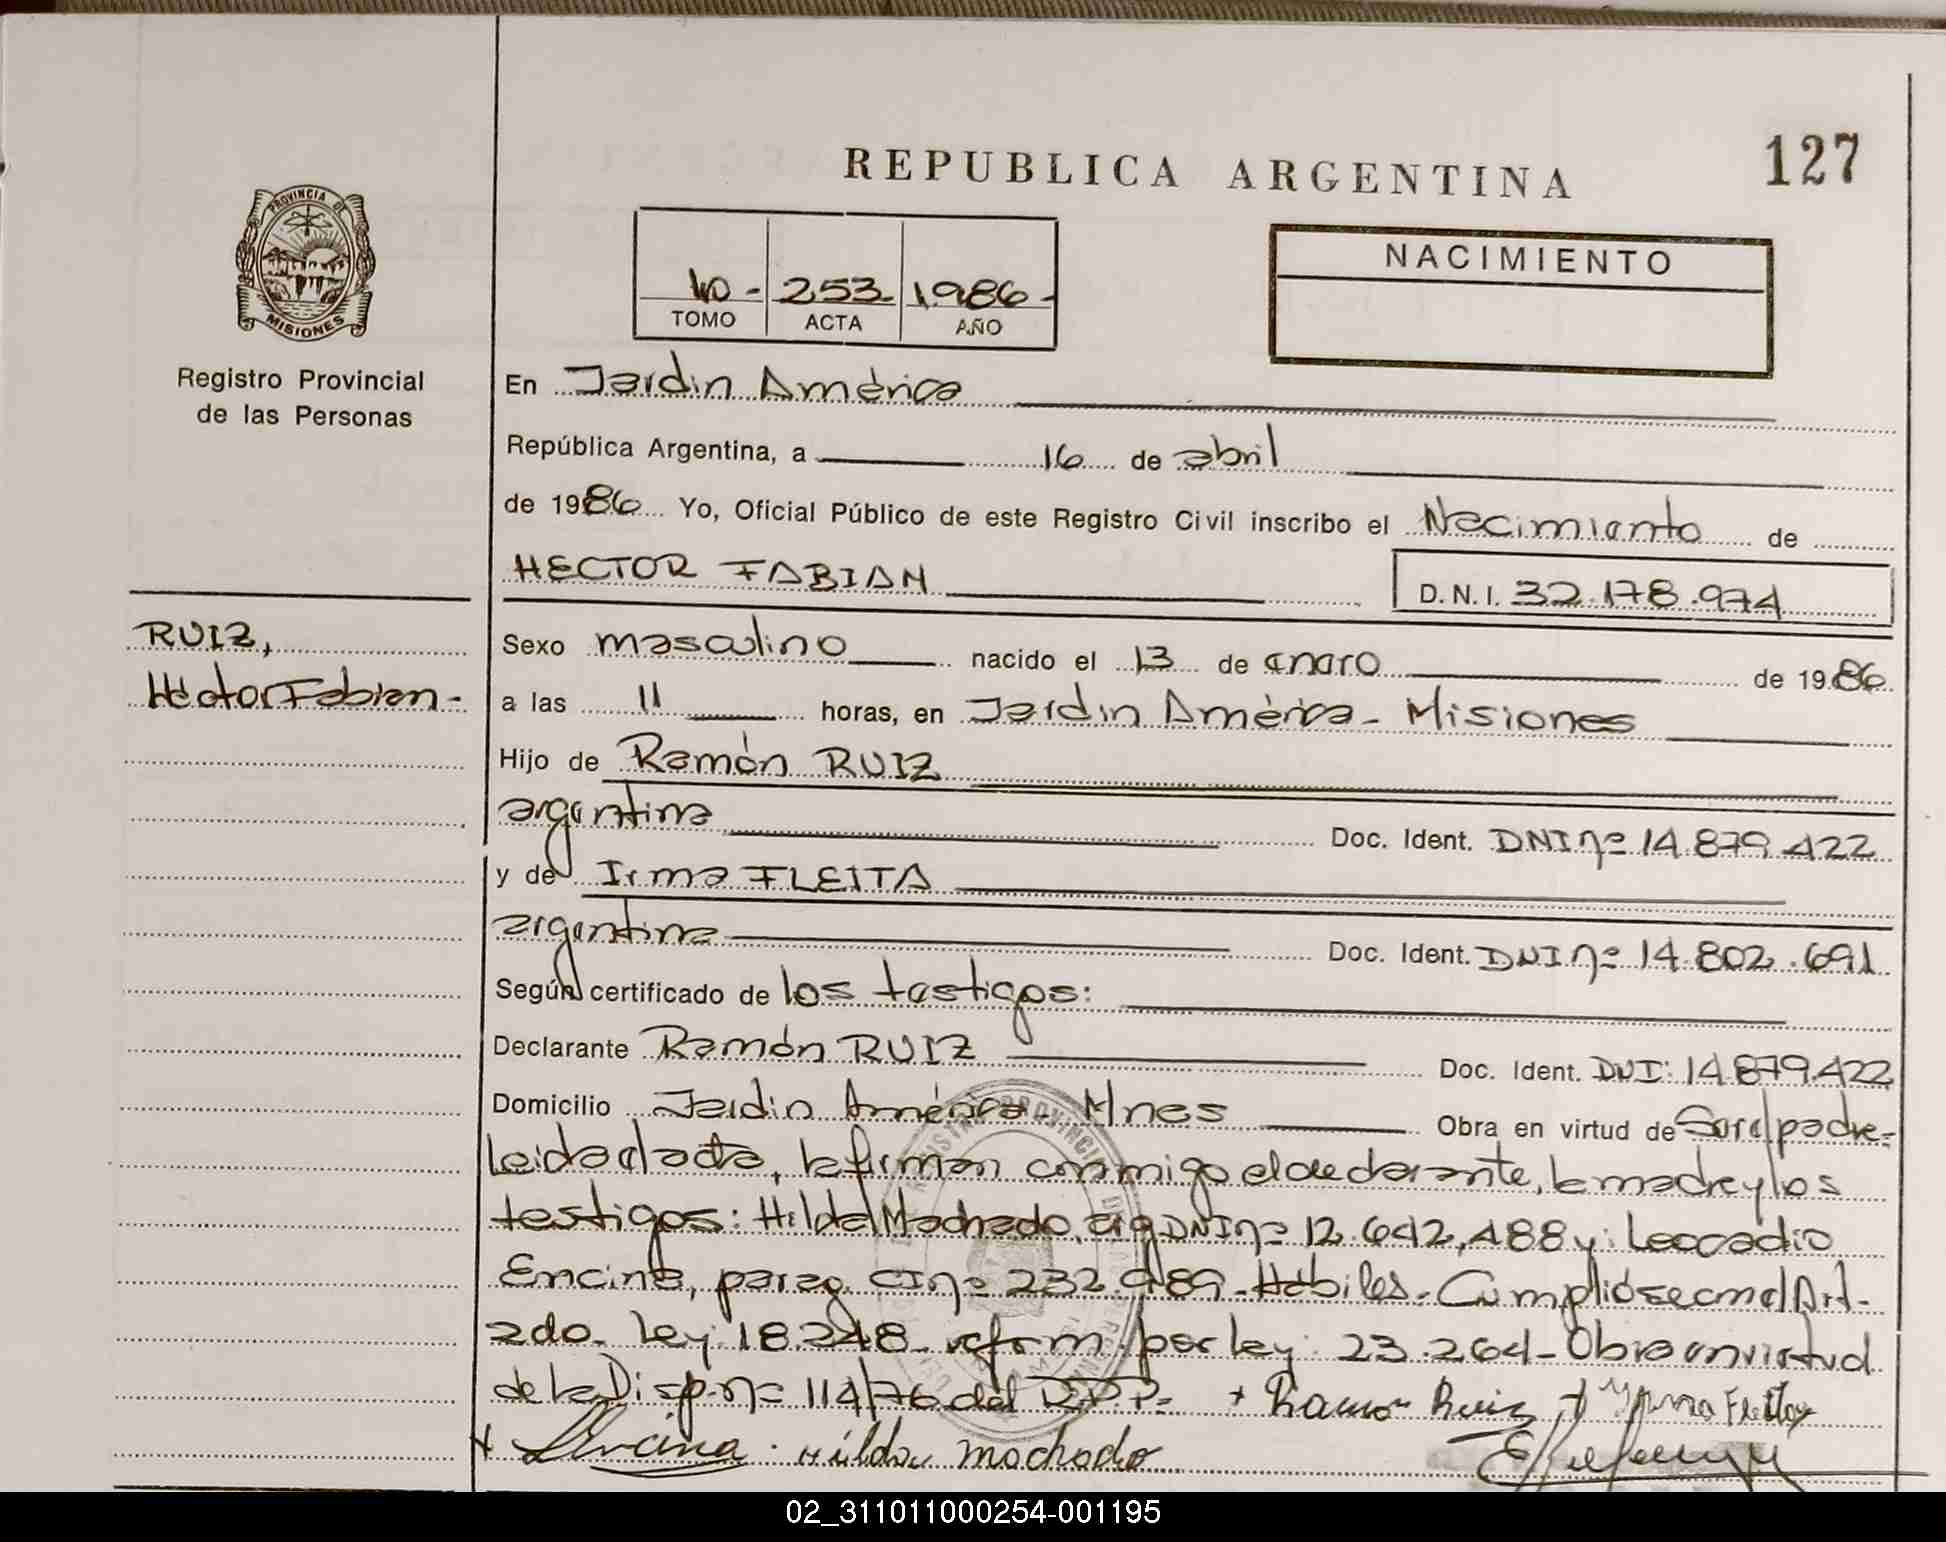 127
REPUBLICA ARGENTINA
PROVINCIA DE
MISIONES
Registro Provincial
de las Personas
10- 253- 1986-
TOMO ACTA AÑO
NACIMIENTO
En Jardin América
República Argentina, a 16 de abril
de 1986 Yo, Oficial Público de este Registro Civil inscribo el Nacimiento de
HECTOR FABIAN D.N.I. 32.178.974
RUIZ,
Héctor Fabian-
Sexo masculino nacido el 13 de enero de 1986
a las 11 horas, en Jardin América- Misiones
Hijo de Ramón RUIZ
argentina Doc. Ident. DNI nº 14.879.422
y de Irma FLEITA
argentina Doc. Ident. DNI nº 14.802.691
Según certificado de los testigos:
Declarante Ramón RUIZ Doc. Ident. DNI: 14.879.422
Domicilio Jardin América- Mnes Obra en virtud de Ser el padre-
Leida el acta, la firman conmigo el declarante, la madre y los
testigos: Hilda Machado, arg DNI nº 12.642.488 y: Leocadio
Encina, parag. CI nº 232.989- Hábiles- Cumplióse con el Art-
2do- Ley: 18.248- reform. por ley: 23.264- Obra en virtud
de la Disp. nº 114/76 del R.P.P.- + Ramon Ruiz + Yrma Fleita
+ Encina. Hilda machado
02_311011000254-001195